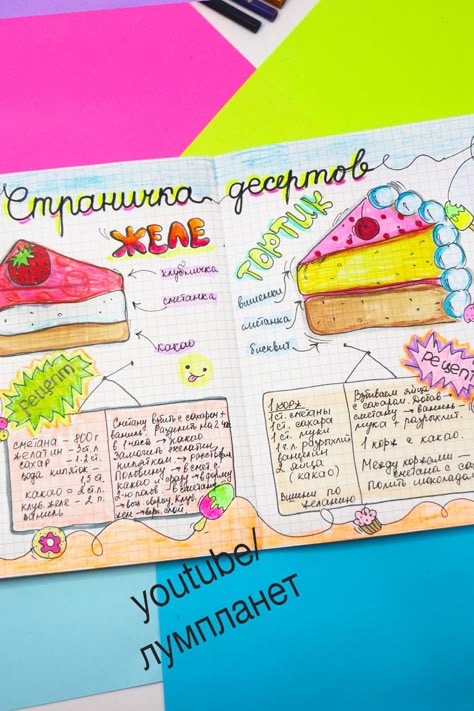 Страничка десертов
ЖЕЛЕ
клубничка
сметанка
какао
Рецепт
сметана - 800 г.
желатин - 3 ст. л
сахар - 1.2 ст.
вода кипяток -
1,5 ст.
какао = 2 ст. л.
клуб. желе - 2 п.
ваниль
Сметану взбить с сахаром +
ваниль. Разделить на 2 ч.
в 1 часть → какао
Замочить желатин
кипятком →
Половину → в смет. с
какао и сразу → в форму
2-ю полов - в сметану
→ вон сверху. Клуб.
желе → верх. слой.
ТОРТИК
вишенки
сметанка
бисквит
Рецепт
1 корж
1 ст. сметаны
1 ст. сахара
1 ст. муки
1 ч. л разрыхлит
ванилин
2 яйца
(какао)
Вишни по
желанию
Взбиваем яйца
с сахаром. Добав -
сметану → ваниль -
мука + разрыхлит.
1 корж с какао.
Между коржами -
сметана с са
полить шоколадом
youtube/
лумпланет